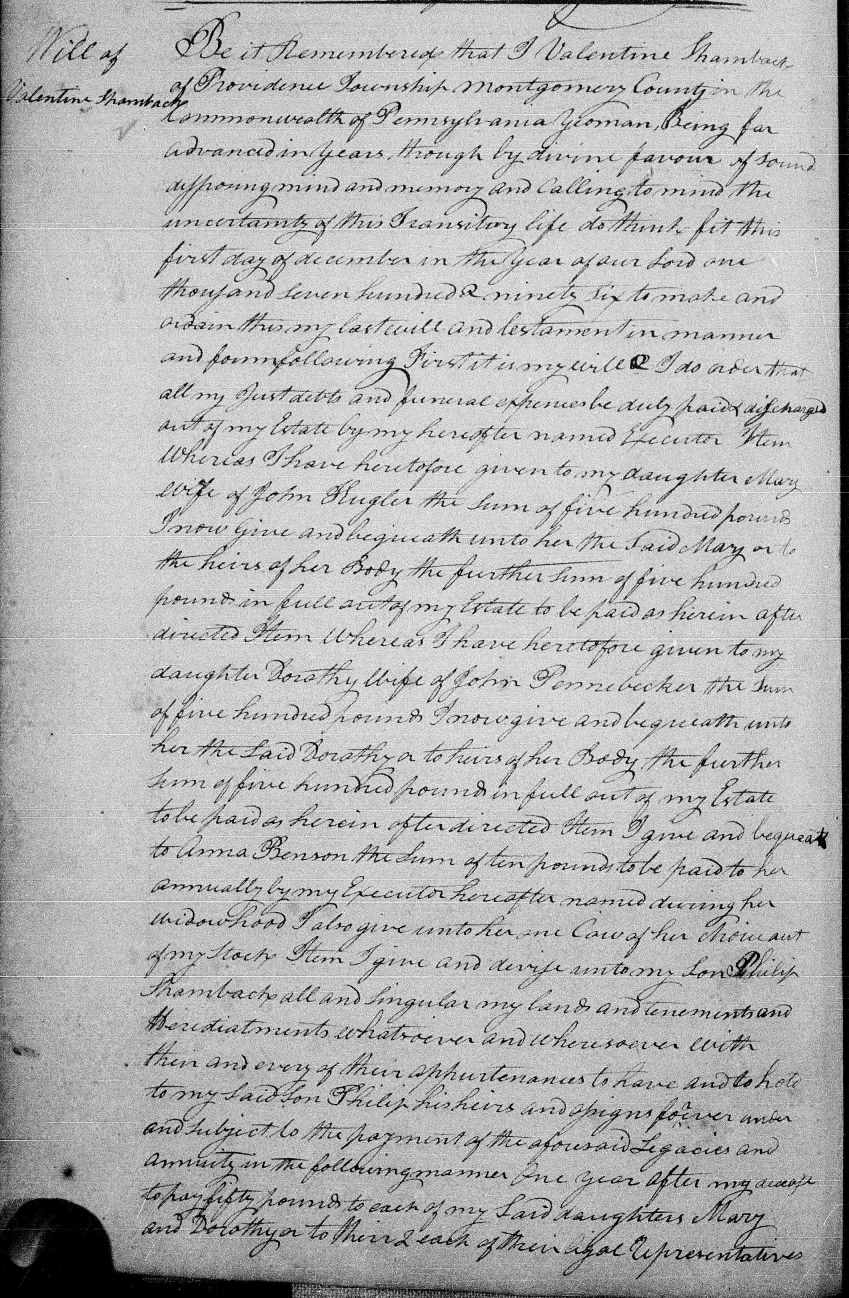 Will of
Valentine Shamback
Be it Remembered that I Valentine Shamback
of Providence Township Montgomery County in the
Commonwealth of Pennsylvania Yeoman, Being far
advanced in Years, though by divine favour of sound
disposing mind and memory and Calling to mind the
uncertainty of this Transitory life do think fit this
first day of december in the Year of our Lord one
thousand seven hundred & ninety six to make and
ordain this my last will and testament in manner
and form following First it is my will & I do order that
all my Just debts and funeral expences be duly paid & discharged
out of my Estate by my hereafter named Executor Item
Whereas I have heretofore given to my daughter Mary
Wife of John Kugler the sum of five hundred pounds
I now Give and bequeath unto her the Said Mary or to
the heirs of her Body the further sum of five hundred
pounds in full out of my Estate to be paid as herein after
directed Item Whereas I have heretofore given to my
daughter Dorathy Wife of John Pennebecker the sum
of five hundred pounds I now give and bequeath unto
her the Said Dorathy or to heirs of her Body the further
Sum of five hundred pounds in full out of my Estate
to be paid as herein after directed Item I give and bequeath
to Anna Benson the Sum of ten pounds to be paid to her
annually by my Executor hereafter named during her
widowhood I also give unto her one Cow of her choice out
of my Stock Item I give and devise unto my Son Philip
Shamback all and singular my lands and tenements and
Herediatments whatsoever and wheresoever with
their and every of their appurtenances to have and to hold
to my Said Son Philip his heirs and assigns forever under
and subject to the payment of the aforesaid Legacies and
annuity in the following manner One year after my decease
to pay fifty pounds to each of my Said daughters Mary
and Dorathy or to their & each of their legal Representatives